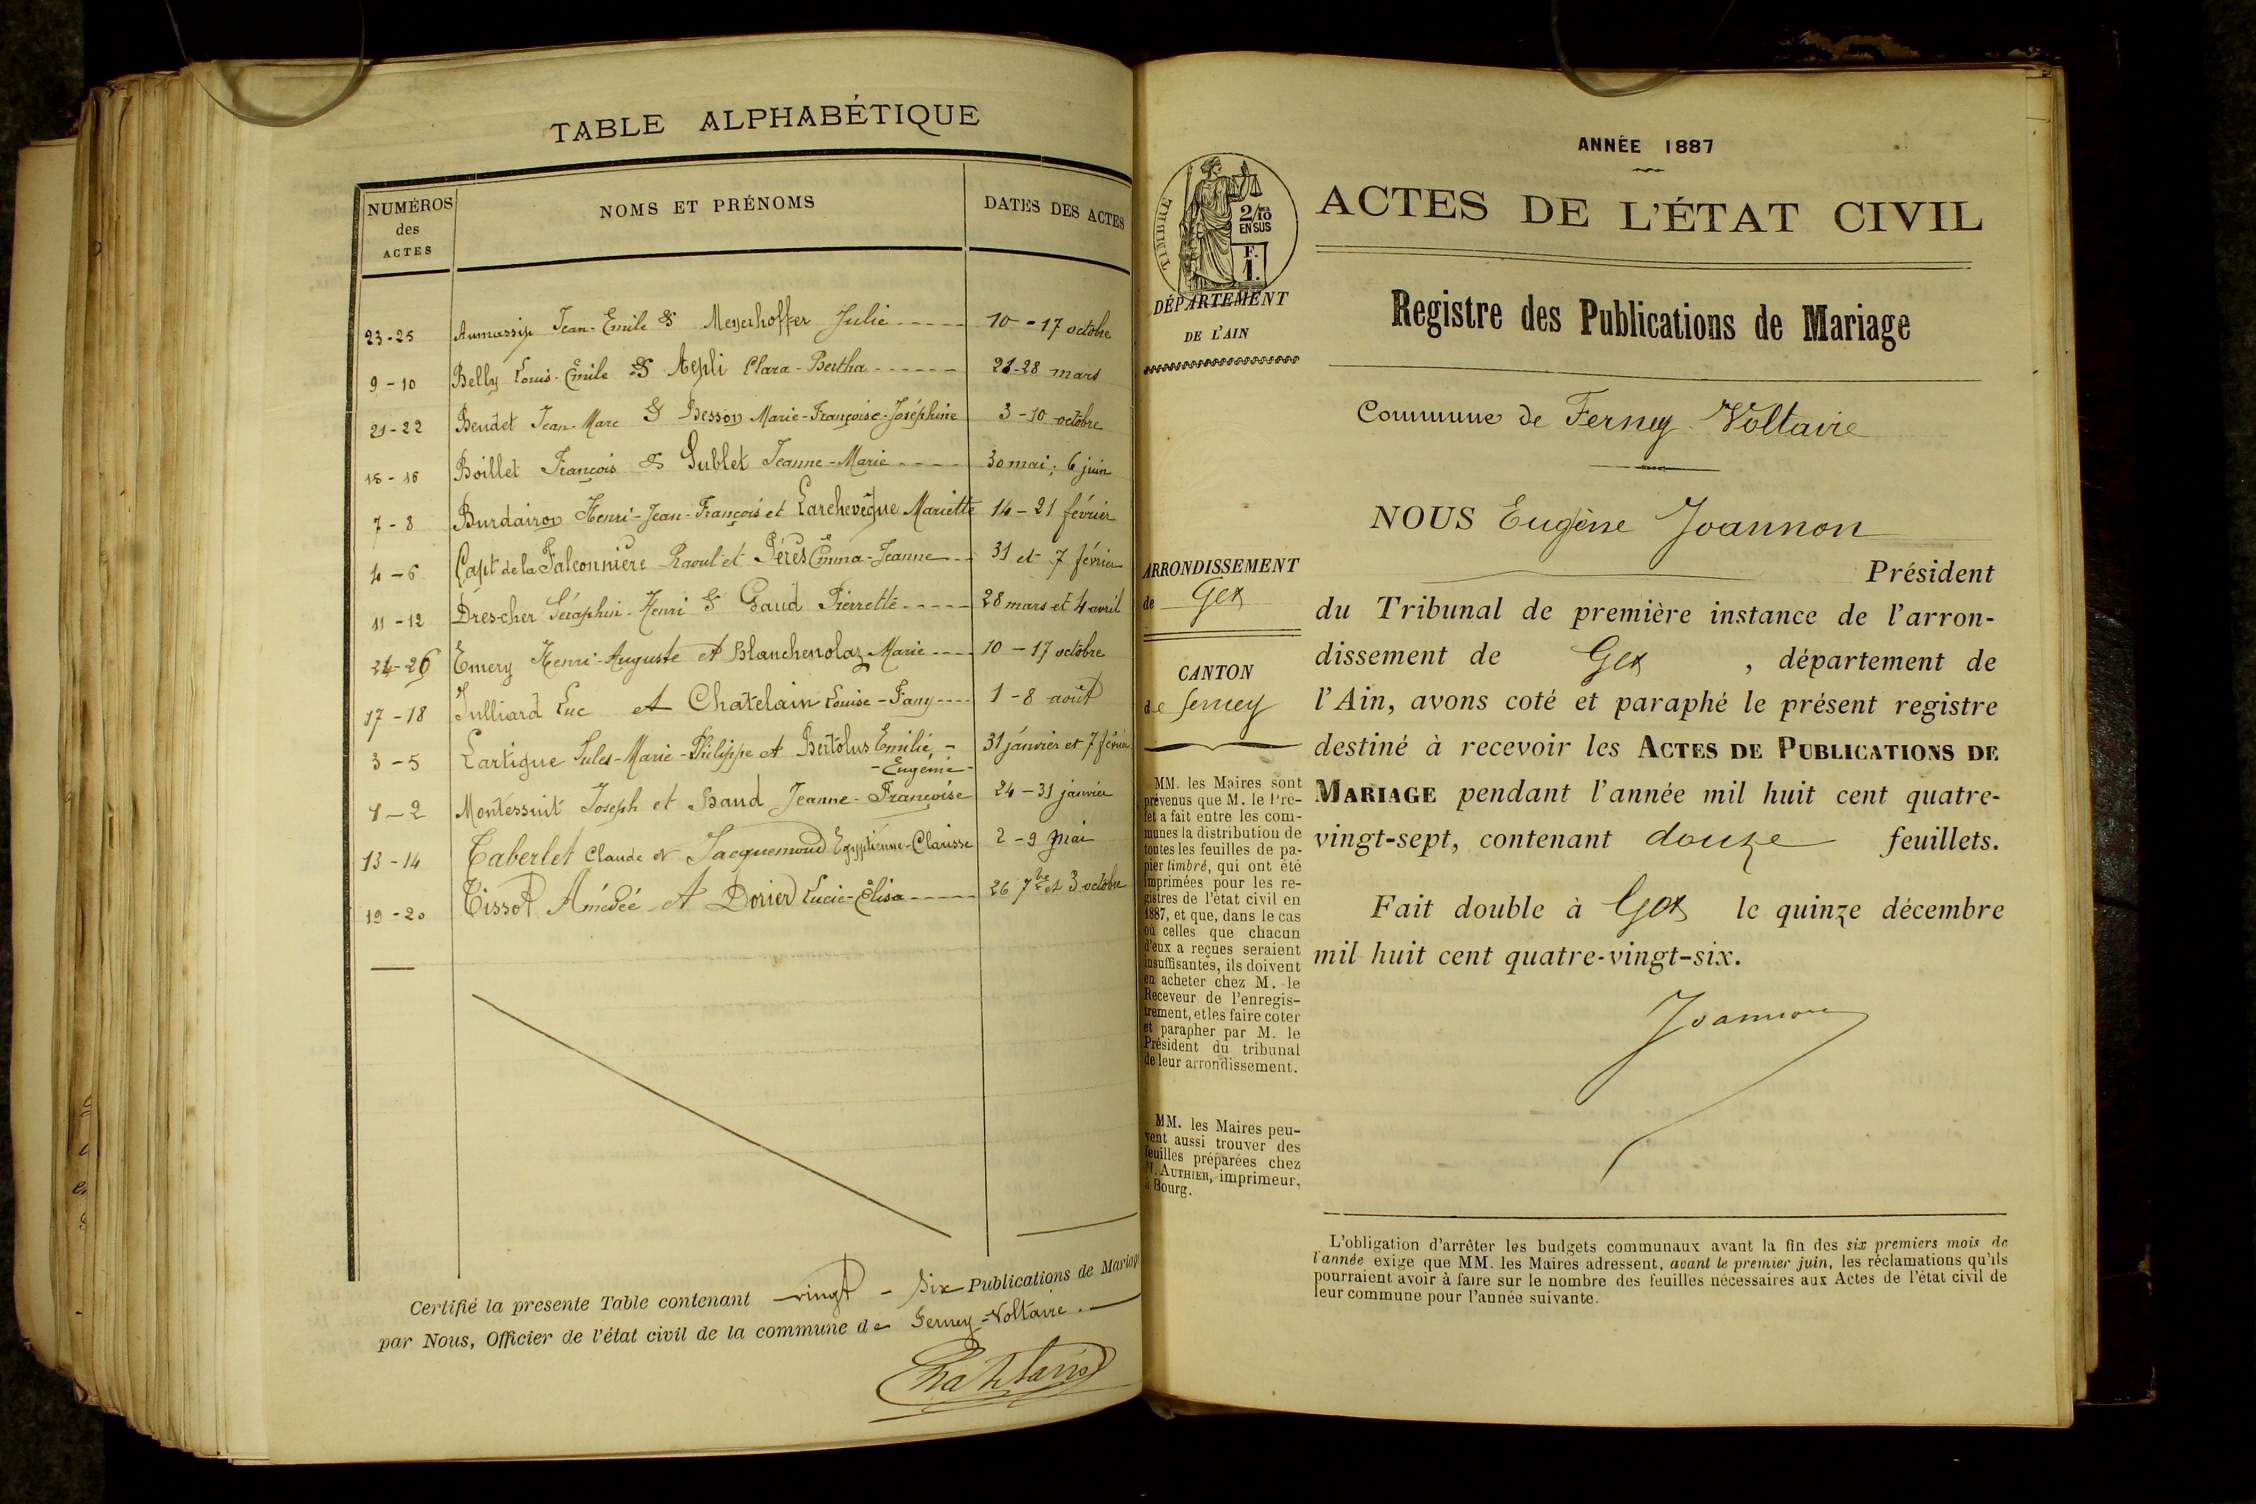 TABLE ALPHABÉTIQUE
NUMÉROS des ACTES NOMS ET PRÉNOMS DATES DES ACTES
23-25 Aumassip Jean-Emile & Meyerhoffer Julie 10-17 octobre
9-10 Belly Louis-Émile & Aepli Clara-Bertha 21-28 mars
21-22 Bendet Jean-Marc & Besson Marie-Françoise-Joséphine 3-10 octobre
15-16 Boillet François & Sublet Jeanne-Marie 30 mai; 6 juin
7-8 Burdairon Henri-Jean-François et Larchevêque Mariette 14-21 février
4-6 Capt de la Falconnière Raoul et Pérès Emma-Jeanne 31 et 7 février
11-12 Drescher Séraphin-Henri & Gaud Pierrette 28 mars et 4 avril
24-26 Emery Henri-Auguste et Blanchenolaz Marie 10-17 octobre
17-18 Julliard Luc et Chatelain Louise-Fany 1-8 août
3-5 Lartigue Jules-Marie-Philippe et Bertolus Emilie- 31 janvier et 7 février
-Eugénie-
1-2 Montessuit Joseph et Baud Jeanne-Françoise 24-31 janvier
13-14 Taberlet Claude et Jacquemoud Egyptienne-Clarisse 2-9 mai
19-20 Tissot Amédée et Dorier Lucie-Élisa 26 7bre et 3 octobre
Certifié la presente Table contenant vingt-six Publications de Mariage
par Nous, Officier de l'état civil de la commune de Ferney-Voltaire.
ANNÉE 1887
ACTES DE L'ÉTAT CIVIL
TIMBRE
2/10
EN SUS
F.
1.
DÉPARTEMENT
DE L'AIN
Registre des Publications de Mariage
Commune de Ferney-Voltaire
NOUS Eugène Joannon
Président
du Tribunal de première instance de l'arron-
dissement de Gex, département de
l'Ain, avons coté et paraphé le présent registre
destiné à recevoir les ACTES DE PUBLICATIONS DE
MARIAGE pendant l'année mil huit cent quatre-
vingt-sept, contenant douze feuillets.
Fait double à Gex le quinze décembre
mil huit cent quatre-vingt-six.
Joannon
ARRONDISSEMENT
de Gex
CANTON
de Ferney
MM. les Maires sont
prévenus que M. le Pré-
fet a fait entre les com-
munes la distribution de
toutes les feuilles de pa-
pier timbré, qui ont été
imprimées pour les re-
gistres de l'état civil en
1887, et que, dans le cas
où celles que chacun
d'eux a reçues seraient
insuffisantes, ils doivent
en acheter chez M. le
Receveur de l'enregis-
trement, et les faire coter
et parapher par M. le
Président du tribunal
de leur arrondissement.
MM. les Maires peu-
vent aussi trouver des
feuilles préparées chez
M. AUTHIER, imprimeur,
à Bourg.
L'obligation d'arrêter les budgets communaux avant la fin des six premiers mois de
l'année exige que MM. les Maires adressent, avant le premier juin, les réclamations qu'ils
pourraient avoir à faire sur le nombre des feuilles nécessaires aux Actes de l'état civil de
leur commune pour l'année suivante.